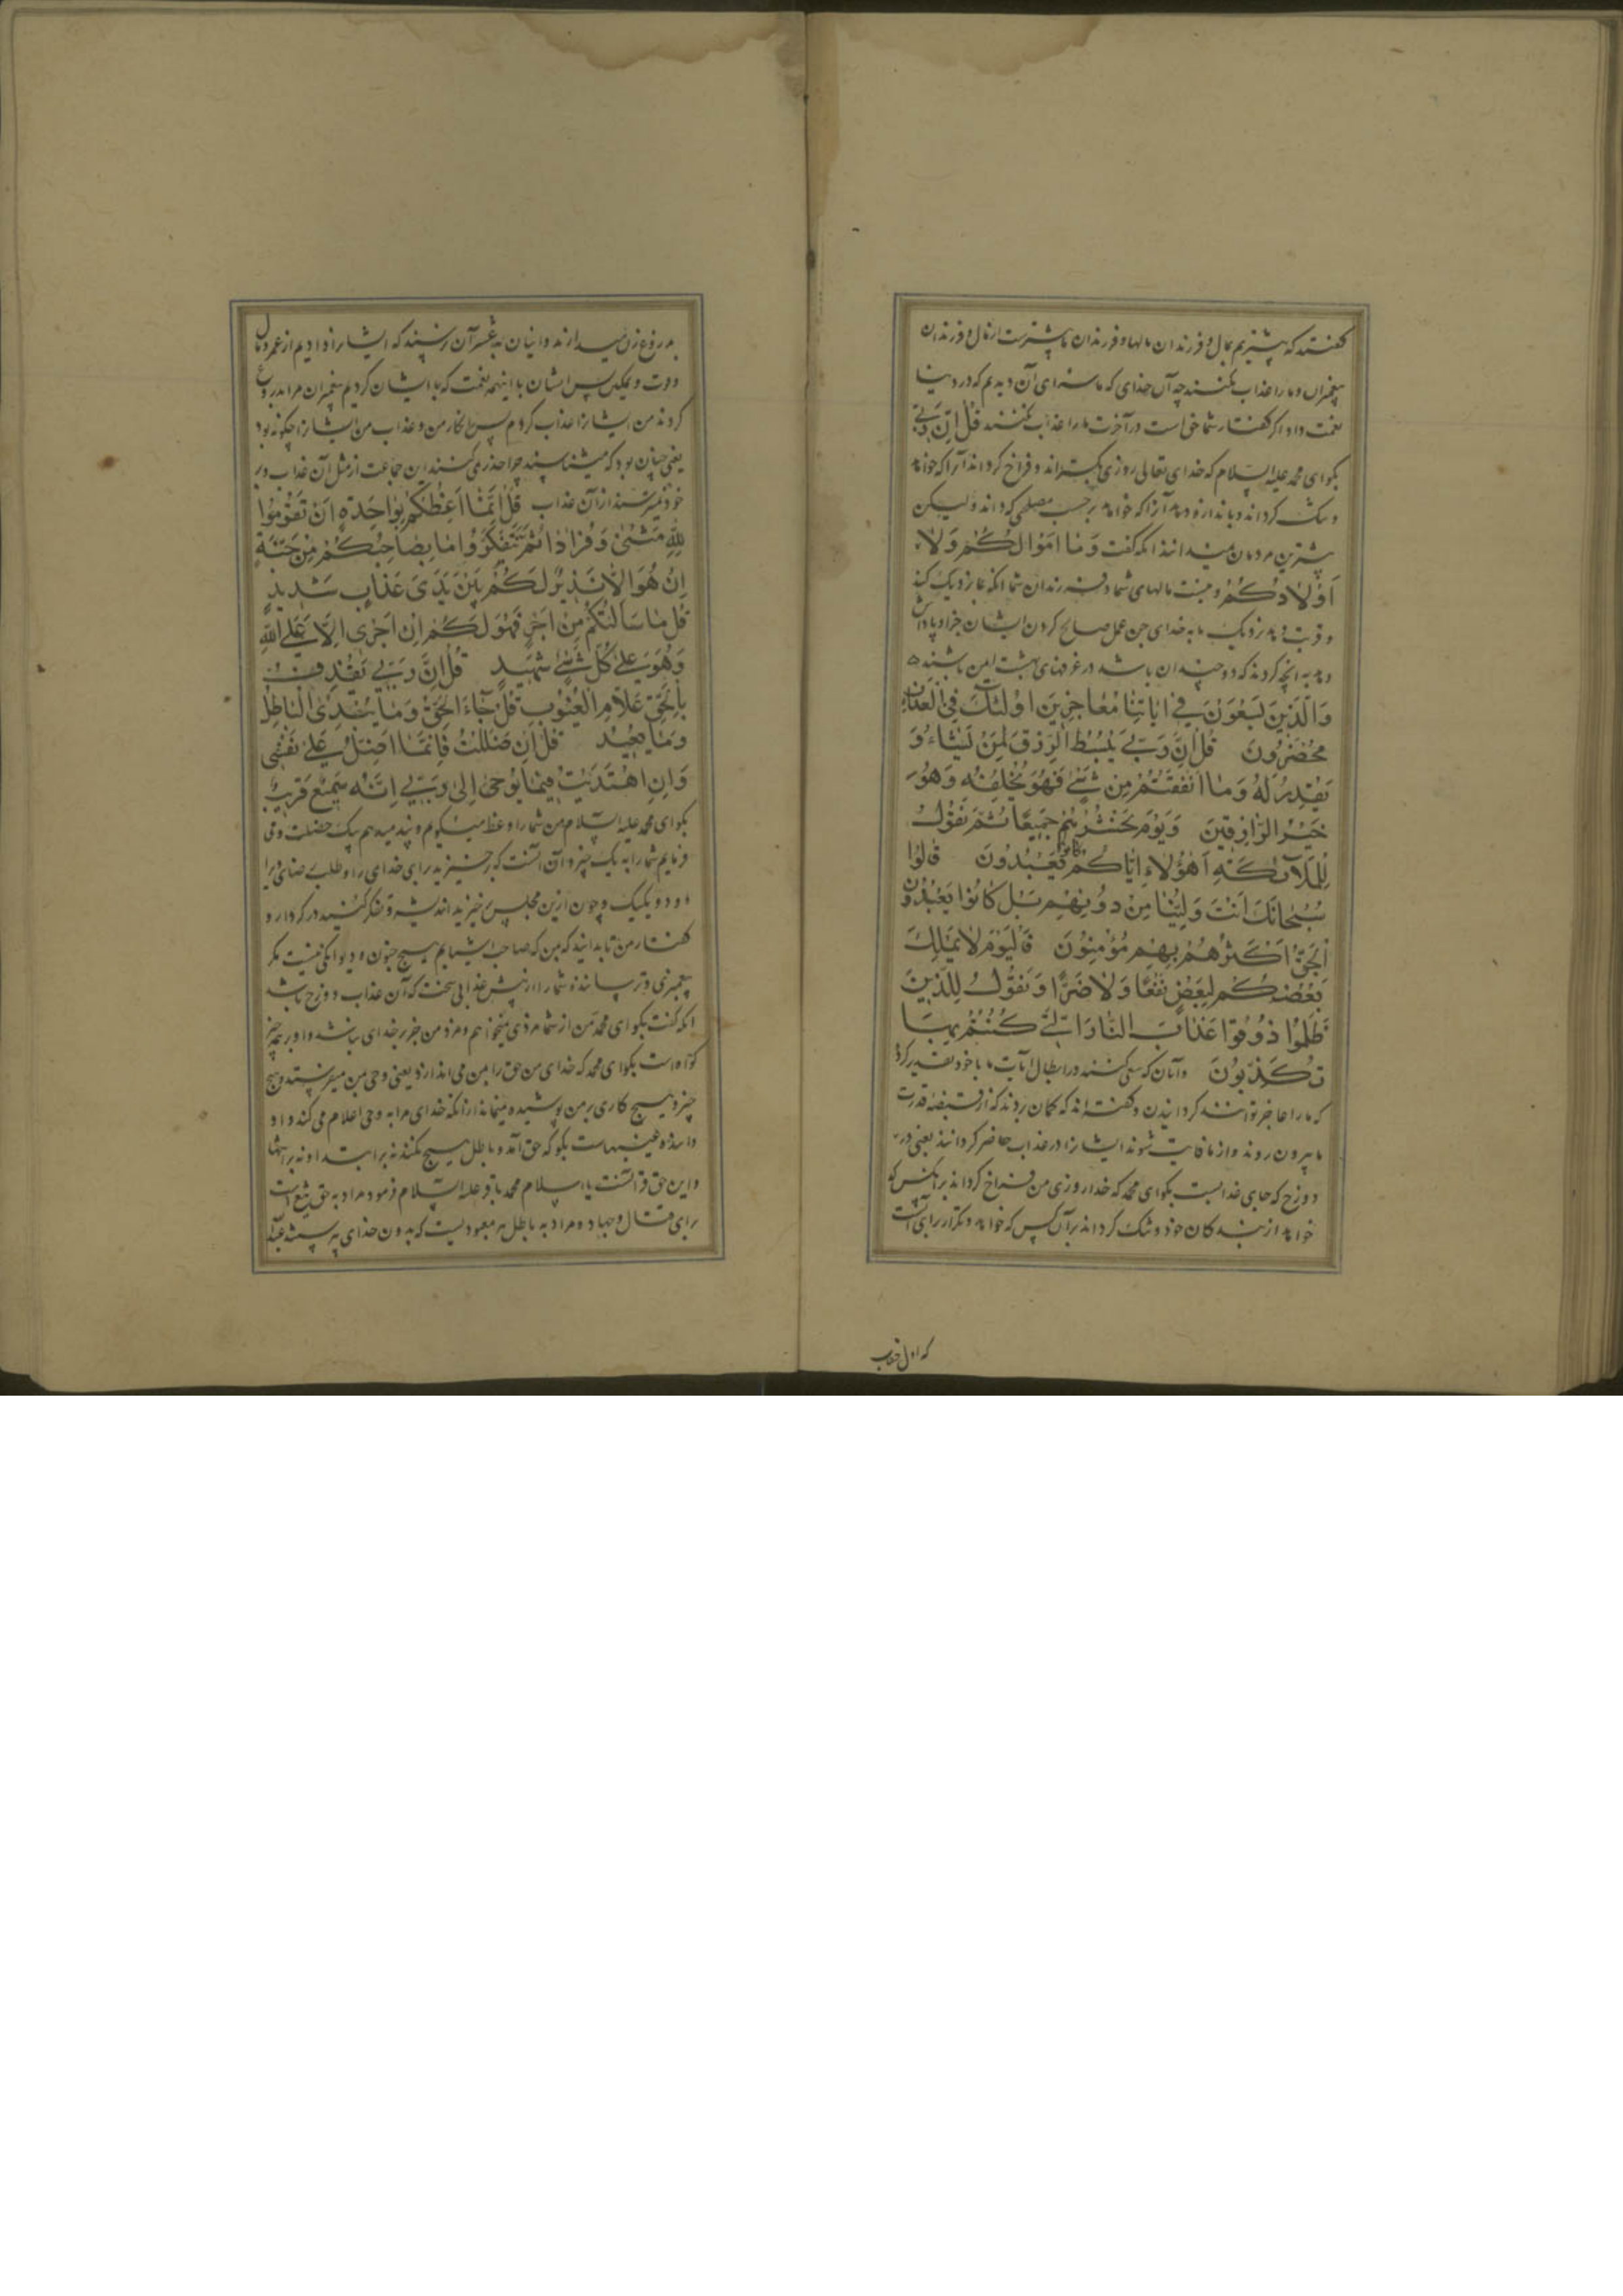 گفتند که بیشتریم بمال و فرزندان مالها و فرزندان ما بیشترست از مال و فرزندان
پیغمبران و ما را عذاب نکنند چه آن خدای که ما سزای آن دیدیم که در دنیا
نعمت داد اگر گفتار شما حق است در آخرت ما را عذاب نکنند قُلْ اِنَّ رَبّی
بگو ای محمد علیه السلام که خدای تعالی روزی بگستراند و فراخ گرداند آنرا که خواهد
و تنگ گرداند و باندازه دهد آنرا که خواهد بر حسب مصلحتی که داند ولیکن
بیشترین مردمان نمیدانند آنکه گفت وَمَا اَمْوَالُكُمْ وَلَا
اَوْلَادُكُمْ و نیست مالهای شما و فرزندان شما آنکه بما نزدیک کند
و قربت دهد نزدیک ما به خدای جز عمل صالح کردن ایشان جزا و پاداش
دهد به آنچه کردند که دو چندان باشد در غرفهای بهشت ایمن باشند
وَالَّذِينَ يَسْعَوْنَ فِي اٰيَاتِنَا مُعَاجِزِينَ اُولٰئِكَ فِي الْعَذَابِ
مُحْضَرُونَ قُلْ اِنَّ رَبِّي يَبْسُطُ الرِّزْقَ لِمَنْ يَشَاءُ وَ
يَقْدِرُ لَهُ وَمَا اَنْفَقْتُمْ مِنْ شَيْءٍ فَهُوَ يُخْلِفُهُ وَهُوَ
خَيْرُ الرَّازِقِينَ وَيَوْمَ يَحْشُرُهُمْ جَمِيعًا ثُمَّ نَقُولُ
لِلْمَلَائِكَةِ اَهٰؤُلَاءِ اِيَّاكُمْ كانوا يَعْبُدُونَ قَالُوا
سُبْحَانَكَ اَنْتَ وَلِيُّنَا مِنْ دُونِهِمْ بَلْ كَانُوا يَعْبُدُونَ
الْجِنَّ اَكْثَرُهُمْ بِهِمْ مُؤْمِنُونَ فَالْيَوْمَ لَا يَمْلِكُ
بَعْضُكُمْ لِبَعْضٍ نَفْعًا وَلَا ضَرًّا وَنَقُولُ لِلَّذِينَ
ظَلَمُوا ذُوقُوا عَذَابَ النَّارِ الَّتِي كُنْتُمْ بِهَا
تُكَذِّبُونَ و آنان که سعی کنند در ابطال آیات ما با خود تقدیر کرده
که ما را عاجز توانند گردانیدن و گفته‌اند که گمان بردند که از قبضه قدرت
ما بیرون روند و از ما فایت شوند ایشانرا در عذاب حاضر گردانند یعنی در
دوزخ که جای عذابست بگو ای محمد که خدا روزی من فراخ گرداند بر آنکس که
خواهد از بندگان خود و تنگ گرداند بر آن کس که خواهد و تکرار برای آنست
که اول خطاب
به دروغ زن میدارند و اینان به عشر آن نرسیدند که ایشانرا دادیم از عمر و مال
و قوت و تمکین پس ایشان با اینهمه نعمت که با ایشان کردیم پیغمبران مرا بدروغ
کردند من ایشانرا عذاب کردم پس انکار من و عذاب من ایشانرا چگونه بود
یعنی چنان بود که میشناسند چرا حذر نمی کنند این جماعت از مثل آن عذاب و بر
خود نمیترسند از آن عذاب قُلْ اِنَّمَا اَعِظُكُمْ بِوَاحِدَةٍ اَنْ تَقُومُوا
لِلّٰهِ مَثْنٰى وَفُرَادٰى ثُمَّ تَتَفَكَّرُوا مَا بِصَاحِبِكُمْ مِنْ جِنَّةٍ
اِنْ هُوَ اِلَّا نَذِيرٌ لَكُمْ بَيْنَ يَدَيْ عَذَابٍ شَدِيدٍ
قُلْ مَا سَاَلْتُكُمْ مِنْ اَجْرٍ فَهُوَ لَكُمْ اِنْ اَجْرِيَ اِلَّا عَلَى اللّٰهِ
وَهُوَ عَلٰى كُلِّ شَيْءٍ شَهِيدٌ قُلْ اِنَّ رَبِّي يَقْذِفُ
بِالْحَقِّ عَلَّامُ الْغُيُوبِ قُلْ جَاءَ الْحَقُّ وَمَا يُبْدِئُ الْبَاطِلُ
وَمَا يُعِيدُ قُلْ اِنْ ضَلَلْتُ فَاِنَّمَا اَضِلُّ عَلٰى نَفْسِي
وَاِنِ اهْتَدَيْتُ فَبِمَا يُوحٰى اِلٰى رَبِّي اِنَّهُ سَمِيعٌ قَرِيبٌ
بگو ای محمد علیه السلام من شما را وعظ میگویم و پند میدهم بیک خصلت و می
فرمایم شما را به یک چیز و آن آنست که برخیزید برای خدای را و طلب رضای او را
دو دو و یک یک و چون ازین مجلس برخیزید اندیشه و تفکر کنید در کردار و
گفتار من تا بدانید که من که صاحب شمایم هیچ جنون و دیوانگی نیست مگر
پیغمبری و ترساننده شما را از پیش عذابی سخت که آن عذاب دوزخ باشد
آنکه گفت بگو ای محمد من از شما مزدی نمیخواهم و مزد من جز بر خدای نباشد و او بر همه چیز
گواه است بگو ای محمد که خدای من حق را بمن می اندازد یعنی وحی بمن میفرستد و هیچ
چیز و هیچ کاری بر من پوشیده نمیماند از آنکه خدای مرا به وحی اعلام می کند و او
داننده غیبهاست بگو که حق آمد و باطل هیچ نکند نه بر ابتدا و نه بر انتها
و این حق قرآنست یا اسلام محمد باقر علیه السلام فرمود مراد به حق تیغ است
برای قتال و جهاد و مراد به باطل هر معبودیست که بدون خدای پرستند